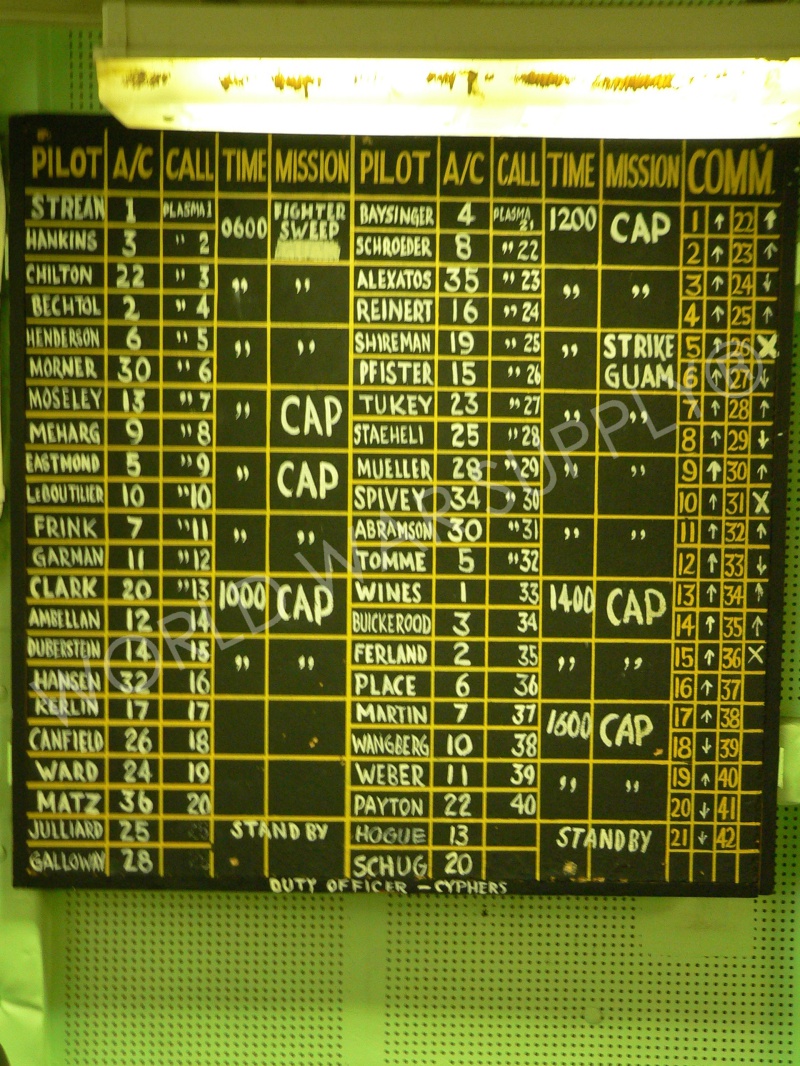 PILOT A/C CALL TIME MISSION PILOT A/C CALL TIME MISSION COMM.
STREAN 1 PLASMA 1 0600 FIGHTER SWEEP BAYSINGER 4 PLASMA 21 1200 CAP 1 ↑ 22 ↑
HANKINS 3 " 2 SCHROEDER 8 " 22 2 ↑ 23 ↑
CHILTON 22 " 3 " " ALEXATOS 35 " 23 " " 3 ↑ 24 ↓
BECHTOL 2 " 4 REINERT 16 " 24 4 ↑ 25 ↑
HENDERSON 6 " 5 " " SHIREMAN 19 " 25 " STRIKE 5 ↑ 26 X
MORNER 30 " 6 PFISTER 15 " 26 GUAM 6 ↑ 27 ↓
MOSELEY 13 " 7 " CAP TUKEY 23 " 27 " " 7 ↑ 28 ↑
MEHARG 9 " 8 STAEHELI 25 " 28 8 ↑ 29 ↓
EASTMOND 5 " 9 " CAP MUELLER 28 " 29 " " 9 ↑ 30 ↑
LEBOUTILIER 10 " 10 SPIVEY 34 " 30 10 ↑ 31 X
FRINK 7 " 11 " " ABRAMSON 30 " 31 " " 11 ↑ 32 ↑
GARMAN 11 " 12 TOMME 5 " 32 12 ↑ 33 ↓
CLARK 20 " 13 1000 CAP WINES 1 33 1400 CAP 13 ↑ 34 ↑
AMBELLAN 12 14 BUICKEROOD 3 34 14 ↑ 35 ↑
DUBERSTEIN 14 15 " " FERLAND 2 35 " " 15 ↑ 36 X
HANSEN 32 16 PLACE 6 36 16 ↑ 37
KERLIN 17 17 MARTIN 7 37 1600 CAP 17 ↑ 38
CANFIELD 26 18 WANGBERG 10 38 18 ↓ 39
WARD 24 19 WEBER 11 39 " " 19 ↑ 40
MATZ 36 20 PAYTON 22 40 20 ↓ 41
JULLIARD 25 STANDBY HOGUE 13 STANDBY 21 ↓ 42
GALLOWAY 28 SCHUG 20
DUTY OFFICER - CYPHERS
WORLD WAR SUPPLY®